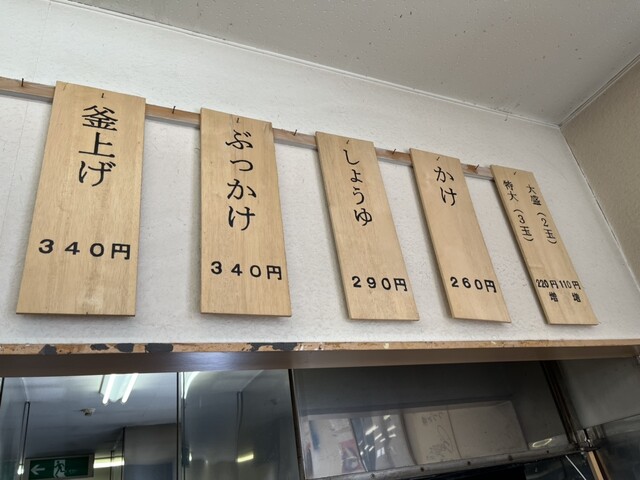 釜上げ
340円
ぶっかけ
340円
しょうゆ
290円
かけ
260円
大盛(2玉)
110円増
特大(3玉)
220円増